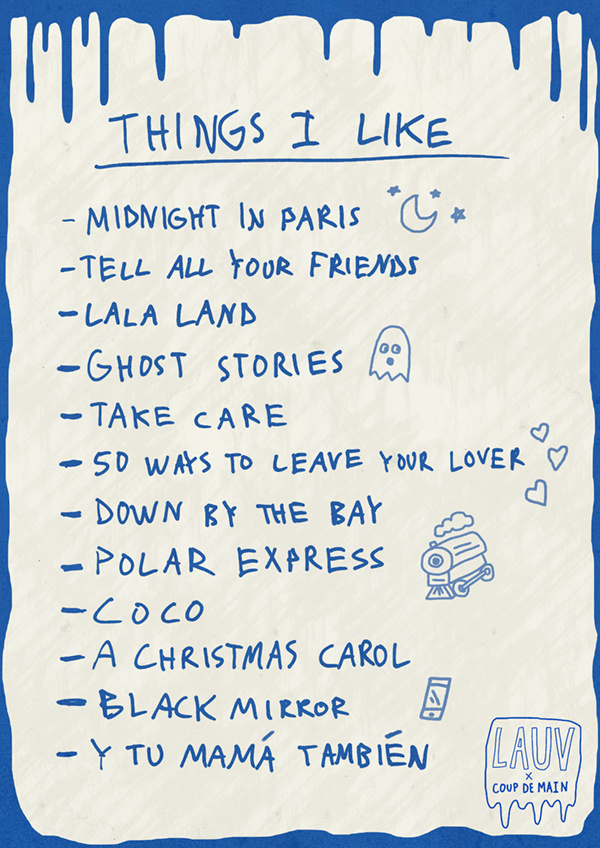 THINGS I LIKE
- MIDNIGHT IN PARIS
- TELL ALL YOUR FRIENDS
- LALA LAND
- GHOST STORIES
- TAKE CARE
- 50 WAYS TO LEAVE YOUR LOVER
- DOWN BY THE BAY
- POLAR EXPRESS
- COCO
- A CHRISTMAS CAROL
- BLACK MIRROR
- Y TU MAMÁ TAMBIÉN
LAUV
x
COUP DE MAIN